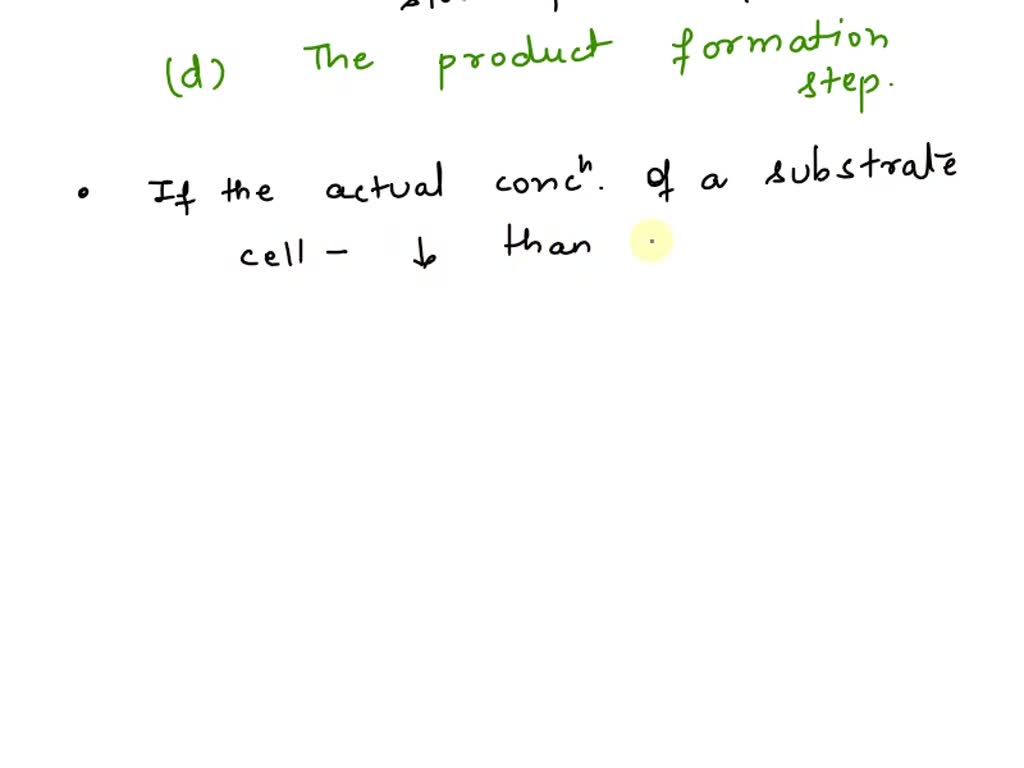 (d) The product formation
step.
• If the actual concn. of a substrate
cell - ↓ than